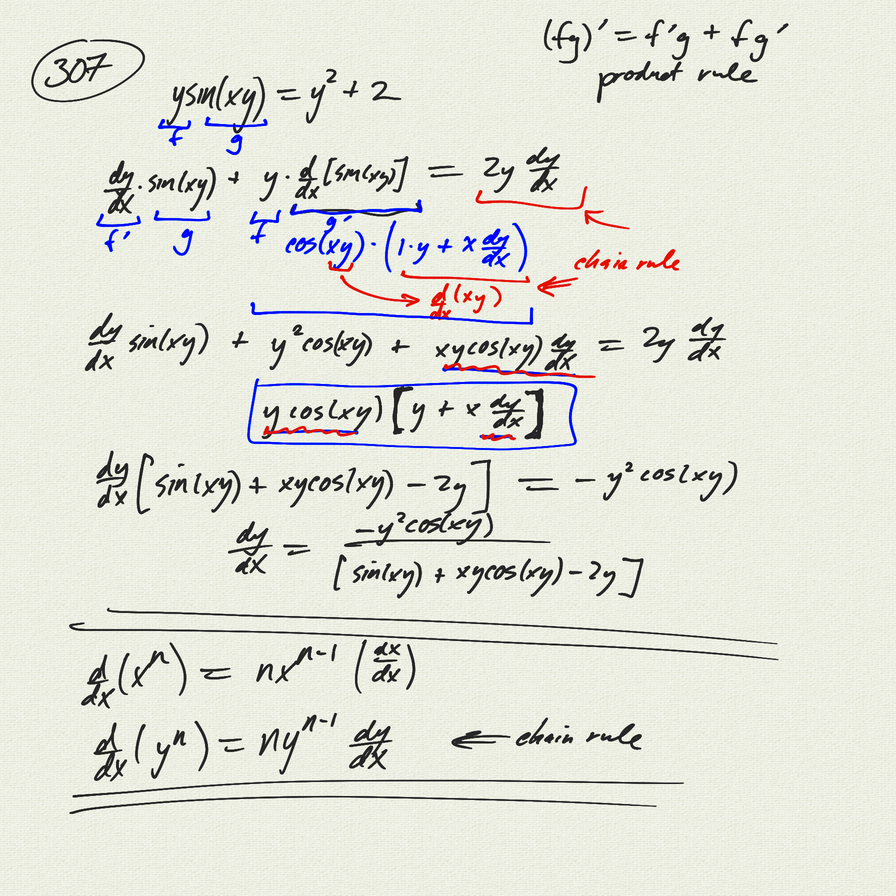 307
(fg)' = f'g + fg'
product rule
ysin(xy) = y² + 2
f g
dy/dx · sin(xy) + y · d/dx [sin(xy)] = 2y dy/dx
f' g f g'
cos(xy) · (1·y + x dy/dx)
chain rule
d/dx (xy)
dy/dx sin(xy) + y² cos(xy) + xy cos(xy) dy/dx = 2y dy/dx
y cos(xy) [y + x dy/dx]
dy/dx [sin(xy) + xy cos(xy) - 2y] = - y² cos(xy)
dy/dx = -y² cos(xy) / [sin(xy) + xy cos(xy) - 2y]
d/dx (xⁿ) = nxⁿ⁻¹ (dx/dx)
d/dx (yⁿ) = nyⁿ⁻¹ dy/dx ← chain rule